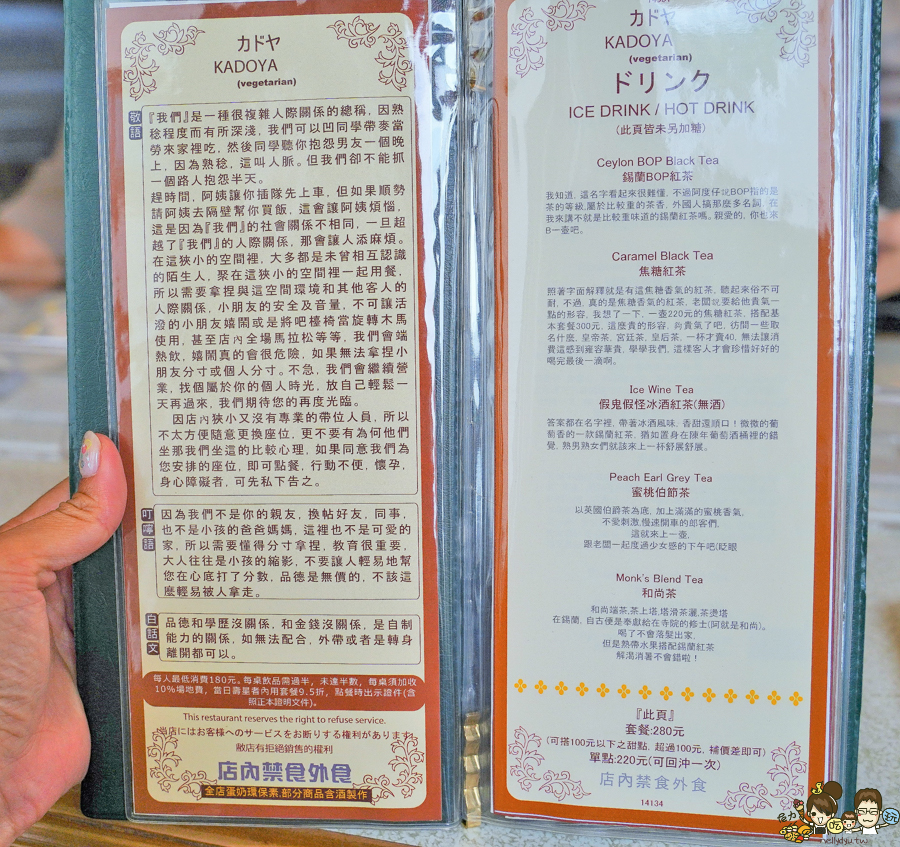 カドヤ
KADOYA
(vegetarian)
敬語
『我們』是一種很複雜人際關係的總稱，因熟
稔程度而有所深淺，我們可以凹同學帶麥當
勞來家裡吃，然後同學聽你抱怨男友一個晚
上，因為熟稔，這叫人脈。但我們卻不能抓
一個路人抱怨半天。
趕時間，阿姨讓你插隊先上車，但如果順勢
請阿姨去隔壁幫你買飯，這會讓阿姨煩惱，
這是因為『我們』的社會關係不相同，一旦超
越了『我們』的人際關係，那會讓人添麻煩。
在這狹小的空間裡，大多都是未曾相互認識
的陌生人，聚在這狹小的空間裡一起用餐，
所以需要拿捏與這空間環境和其他客人的
人際關係，小朋友的安全及音量，不可讓活
潑的小朋友嬉鬧或是將吧檯椅當旋轉木馬
使用，甚至店內全場馬拉松等等，我們會端
熱飲，嬉鬧真的會很危險，如果無法拿捏小
朋友分寸或個人分寸。不急，我們會繼續營
業，找個屬於你的個人時光，放自己輕鬆一
天再過來，我們期待您的再度光臨。
因店內狹小又沒有專業的帶位人員，所以
不太方便隨意更換座位，更不要有為何他們
坐那我們坐這的比較心理，如果同意我們為
您安排的座位，即可點餐，行動不便，懷孕，
身心障礙者，可先私下告之。
叮嚀語
因為我們不是你的親友，換帖好友，同事，
也不是小孩的爸爸媽媽，這裡也不是可愛的
家，所以需要懂得分寸拿捏，教育很重要，
大人往往是小孩的縮影，不要讓人輕易地幫
您在心底打了分數，品德是無價的，不該這
麼輕易被人拿走。
白話文
品德和學歷沒關係，和金錢沒關係，是自制
能力的關係，如無法配合，外帶或者是轉身
離開都可以。
每人最低消費180元。每桌飲品需過半，未達半數，每桌須加收
10%場地費，當日壽星者內用套餐9.5折，點餐時出示證件(含
照正本證明文件)。
This restaurant reserves the right to refuse service.
当店にはお客様へのサービスをお断りする権利があります
敝店有拒絕銷售的權利
店內禁食外食
全店蛋奶環保素,部分商品含酒製作
14134
カドヤ
KADOYA
(vegetarian)
ドリンク
ICE DRINK / HOT DRINK
(此頁皆未另加糖)
Ceylon BOP Black Tea
錫蘭BOP紅茶
我知道，這名字看起來很難懂，不過阿度仔說BOP指的是
茶的等級,屬於比較重的茶香，外國人搞那麼多名詞，在
我來講不就是比較重味道的錫蘭紅茶嗎。親愛的，你也來
B一壺吧。
Caramel Black Tea
焦糖紅茶
照著字面解釋就是有這焦糖香氣的紅茶，聽起來俗不可
耐，不過，真的是焦糖香氣的紅茶，老闆說要給他貴氣一
點的形容，我想了一下，一壺220元的焦糖紅茶，搭配基
本套餐300元，這麼貴的形容，夠貴氣了吧，彷間一些取
名什麼，皇帝茶，宮廷茶，皇后茶，一杯才賣40，無法讓消
費這感到雍容華貴，學學我們，這樣客人才會珍惜好好的
喝完最後一滴啊。
Ice Wine Tea
假鬼假怪冰酒紅茶(無酒)
答案都在名字裡，帶著冰酒風味，香甜還順口！微微的葡
萄香的一款錫蘭紅茶，猶如置身在陳年葡萄酒桶裡的錯
覺，熟男熟女們就該來上一杯舒展舒展。
Peach Earl Grey Tea
蜜桃伯爵茶
以英國伯爵茶為底，加上滿滿的蜜桃香氣，
不愛刺激,慢速開車的郎客們，
這就來上一壺，
跟老闆一起度過少女感的下午吧(眨眼
Monk's Blend Tea
和尚茶
和尚端茶,茶上塔,塔滑茶灑,茶燙塔
在錫蘭，自古便是奉獻給在寺院的修士(阿就是和尚)。
喝了不會落髮出家，
但是熱帶水果搭配錫蘭紅茶
解渴消暑不會錯啦！
『此頁』
套餐:280元
(可搭100元以下之甜點，超過100元，補價差即可)
單點:220元(可回沖一次)
店內禁食外食
14134
nellydyu.tw